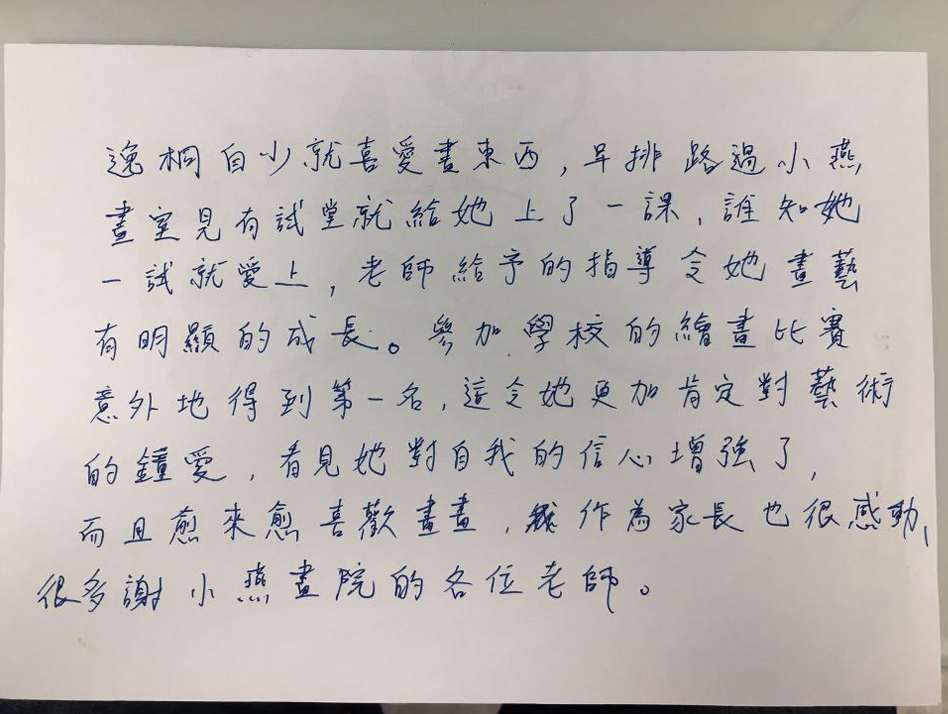 逸桐自少就喜愛畫東西,早排路過小燕
畫室見有試堂就給她上了一課,誰知她
一試就愛上,老師給予的指導令她畫藝
有明顯的成長。參加學校的繪畫比賽
意外地得到第一名,這令她更加肯定對藝術
的鐘愛,看見她對自我的信心增強了,
而且愈來愈喜歡畫畫,我作為家長也很感動,
很多謝小燕畫院的各位老師。